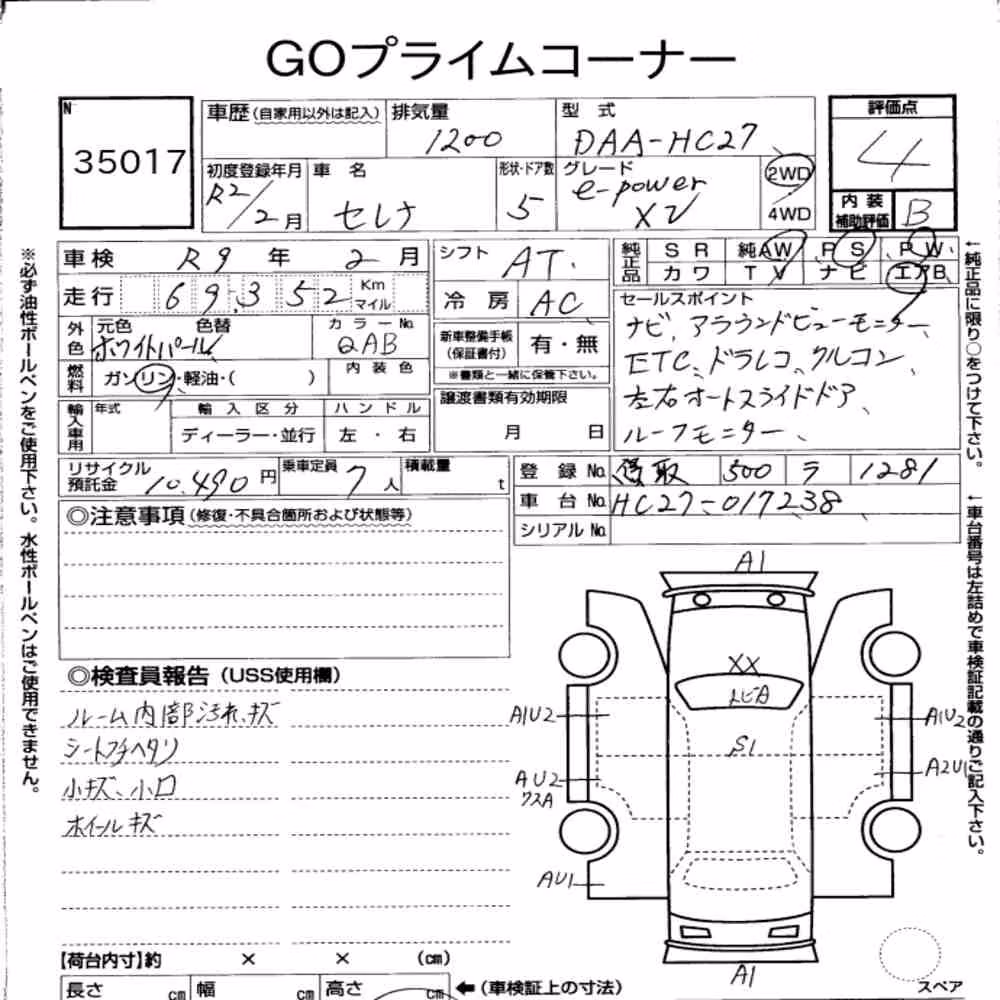 GOプライムコーナー
No 35017
車歴(自家用以外は記入) 排気量 1200 型式 DAA-HC27 評価点 4
初度登録年月 R2/2月 車名 セレナ 形状・ドア数 5 グレード e-power XV 2WD 4WD 内装補助評価 B
車検 R9年 2月 シフト AT. 純正品 SR 純AW PS PW
走行 69,352 Km マイル 冷房 AC カワ TV ナビ エアB
外色 元色 色替 ホワイトパール カラーNo. QAB 新車整備手帳(保証書付) 有・無 ※書類と一緒に保管下さい。
セールスポイント
ナビ、アラウンドビューモニター、
ETC、ドラレコ、クルコン
左右オートスライドドア、
ルーフモニター、
燃料 ガソリン・軽油・( ) 内装色
輸入車用 年式 輸入区分 ハンドル 譲渡書類有効期限
ディーラー・並行 左・右 月 日
リサイクル預託金 10,490円 乗車定員 7人 積載量 t
登録No. 500 ラ 1281
車台No. HC27-017238
シリアルNo.
◎注意事項(修復・不具合箇所および状態等)
◎検査員報告(USS使用欄)
ルーム内部汚れ、キズ
シートフチヘタリ
小キズ、小凹
ホイールキズ
A1
XX
トビA
A1U2 A1U2
S1
AU2 A2U1
クスA
AU1
A1
スペア
【荷台内寸】約 × × (cm)
長さ cm 幅 cm 高さ cm ←(車検証上の寸法)
※必ず油性ボールペンをご使用下さい。水性ボールペンはご使用できません。
←純正品に限り○をつけて下さい。
←車台番号は左詰めで車検証記載の通りご記入下さい。